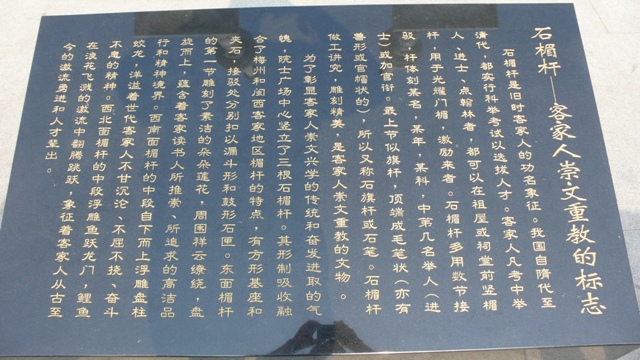 石楣杆——客家人崇文重教的标志
石楣杆是旧时客家人的功名象征。我国自隋代至
清代，都实行科举考试以选拔人才。客家人凡考中举
人、进士、点翰林者，都可以在祖屋或祠堂前竖楣
杆，用于光耀门楣，激励来者。石楣杆多用数节接
驳，杆体刻某名，某年，某科，中第几名举人（进
士）或加官衔。最上节似旗杆，顶端成毛笔状（亦有
兽形或官帽状的），所以又称石旗杆或石笔。石楣杆
做工讲究，雕刻精美，是客家人崇文重教的文物。
为了彰显客家人崇文兴学的传统和奋发进取的气
魄，院士广场中心竖立了三根石楣杆。其形制吸收融
合了梅州和闽西客家地区楣杆的特点，有方形基座和
夹石，接驳处分别扣以漏斗形和鼓形石匣。东面楣杆
的第一节雕刻了素洁的朵朵莲花，周围祥云缭绕，盘
旋而上，蕴含着客家读书人所推崇、所追求的高洁品
行和精神境界。西南面楣杆的中段自下而上浮雕盘柱
蛟龙，洋溢着世代客家人不甘沉沦、不屈不挠、奋斗
不息的精神。西北面楣杆的中段浮雕鱼跃龙门，鲤鱼
在浪花飞溅的激流中翻腾跳跃，象征着客家人从古至
今的激流勇进和人才辈出。